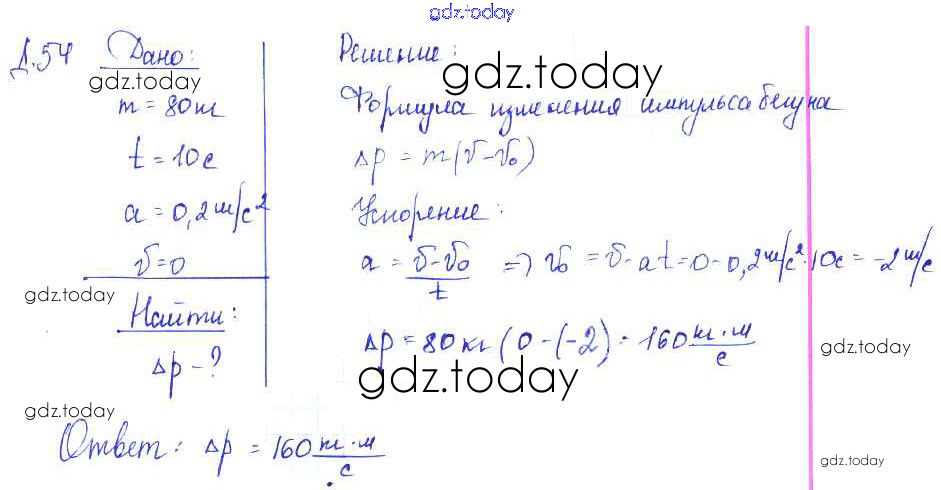 gdz.today
Д.54 Дано:
gdz.today
m = 80 кг
t = 10 с
gdz.today
a = 0,2 м/с²
v = 0
gdz.today
Найти:
Δp - ?
gdz.today
Решение:
gdz.today
Формула изменения импульса бегуна
Δp = m(v-v₀)
Ускорение:
a = (v-v₀)/t => v₀ = v-at = 0-0,2 м/с²·10с = -2 м/с
Δp = 80 кг (0-(-2) = 160 кг·м/с
gdz.today
gdz.today
Ответ: Δp = 160 кг·м/с.
gdz.today